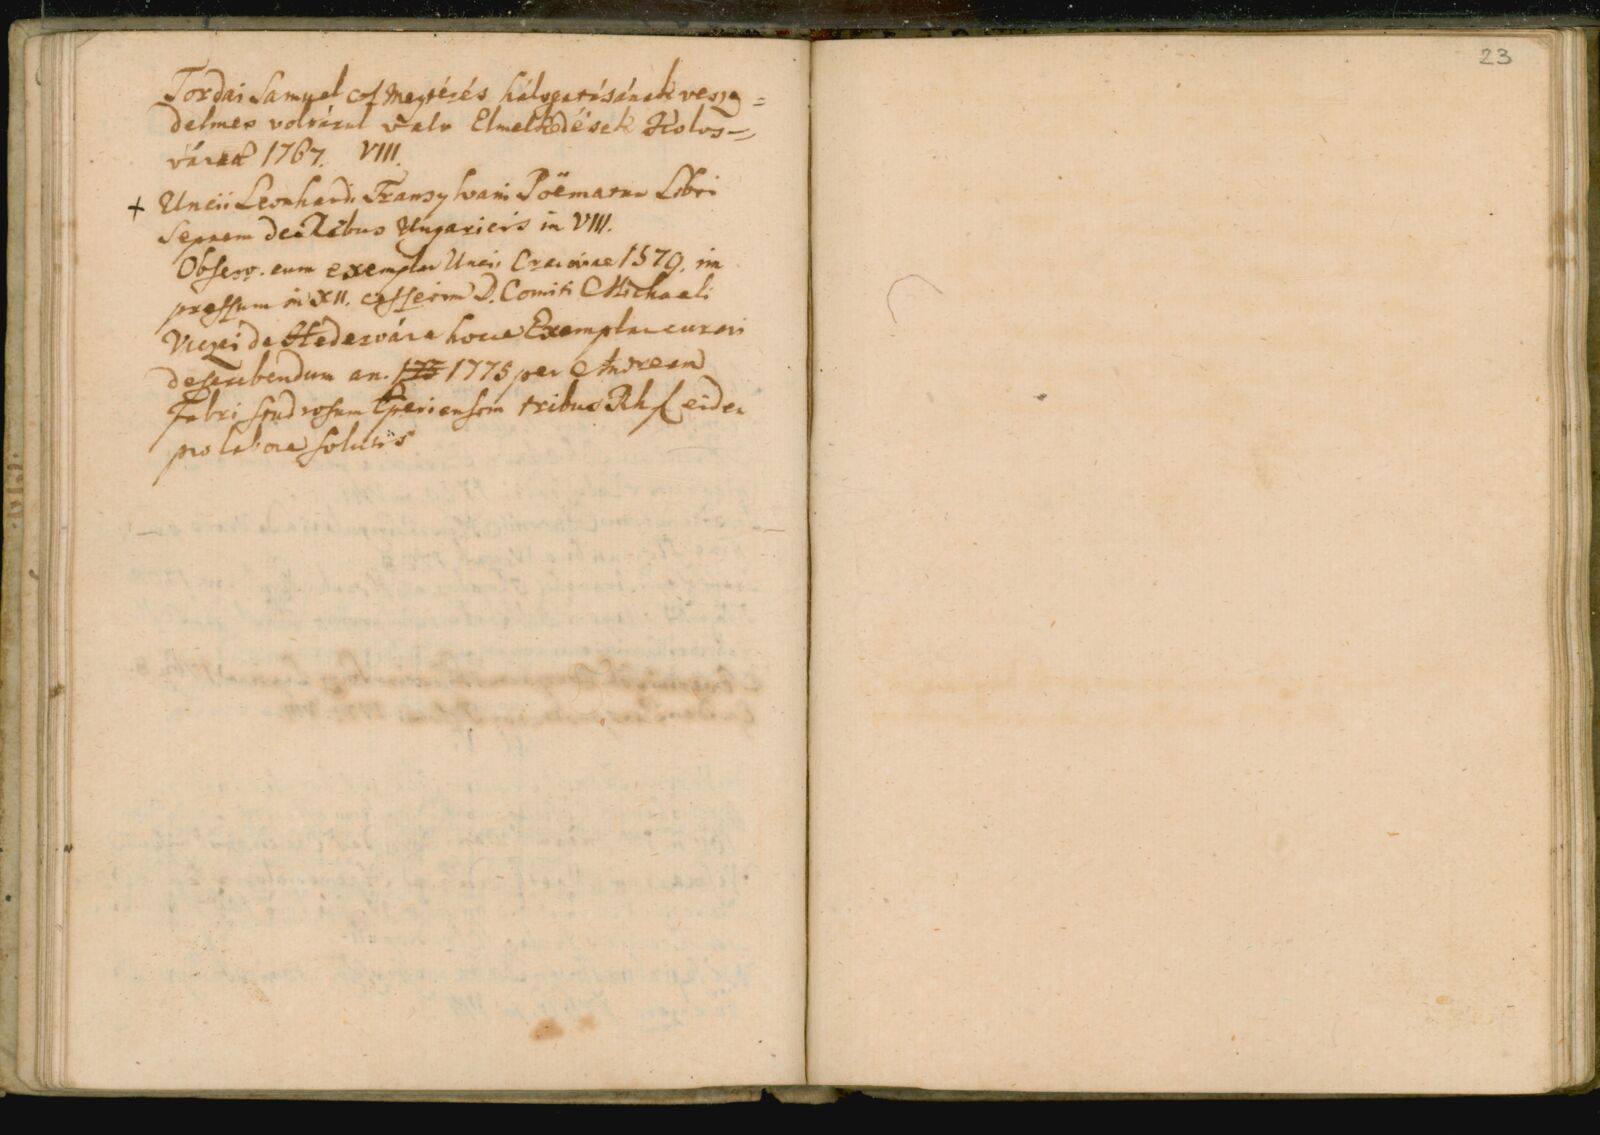 Tordai Samuel A Megtérés halogatásának vesze=
delmes voltárul való Elmelkedések Kolos=
várat 1767. VIII.
+ Uncii Leonhardi Transylvani Poëmatum Libri
Septem de Rebus Ungaricis in VIII.
Observ. cum exemplar Uncii Cracoviae 1579. im
pressum in XII. cessissem D. Comiti Michaeli
Viczei de Hedervára hocce Exemplar curavi
describendum an. 1775 per Andream
Fabri studiosum Eperiensem tribus Rh f eidem
pro labore solutis
23